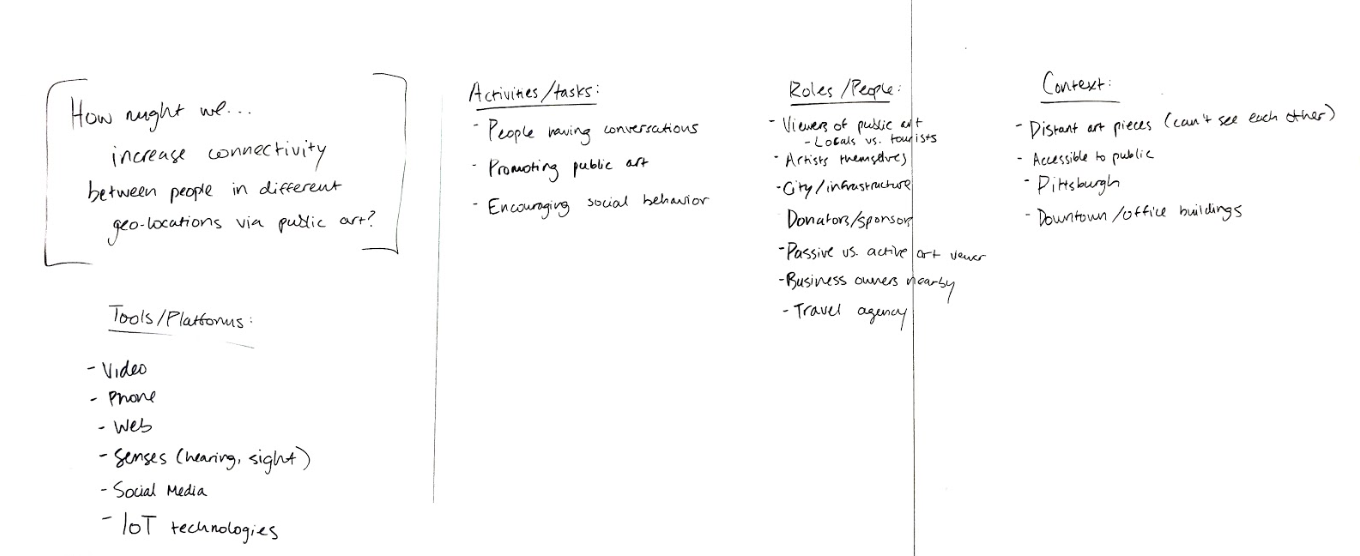 How might we...
increase connectivity
between people in different
geo-locations via public art?
Tools/Platforms:
- Video
- Phone
- Web
- Senses (hearing, sight)
- Social Media
- IoT technologies
Activities/tasks:
- People having conversations
- Promoting public art
- Encouraging social behavior
Roles/People:
- Viewers of public art
- Locals vs. tourists
- Artists themselves
- City/infrastructure
Donators/sponsor
- Passive vs. active art viewer
- Business owners nearby
- Travel agency
Context:
- Distant art pieces (can't see each other)
- Accessible to public
- Pittsburgh
- Downtown/office buildings